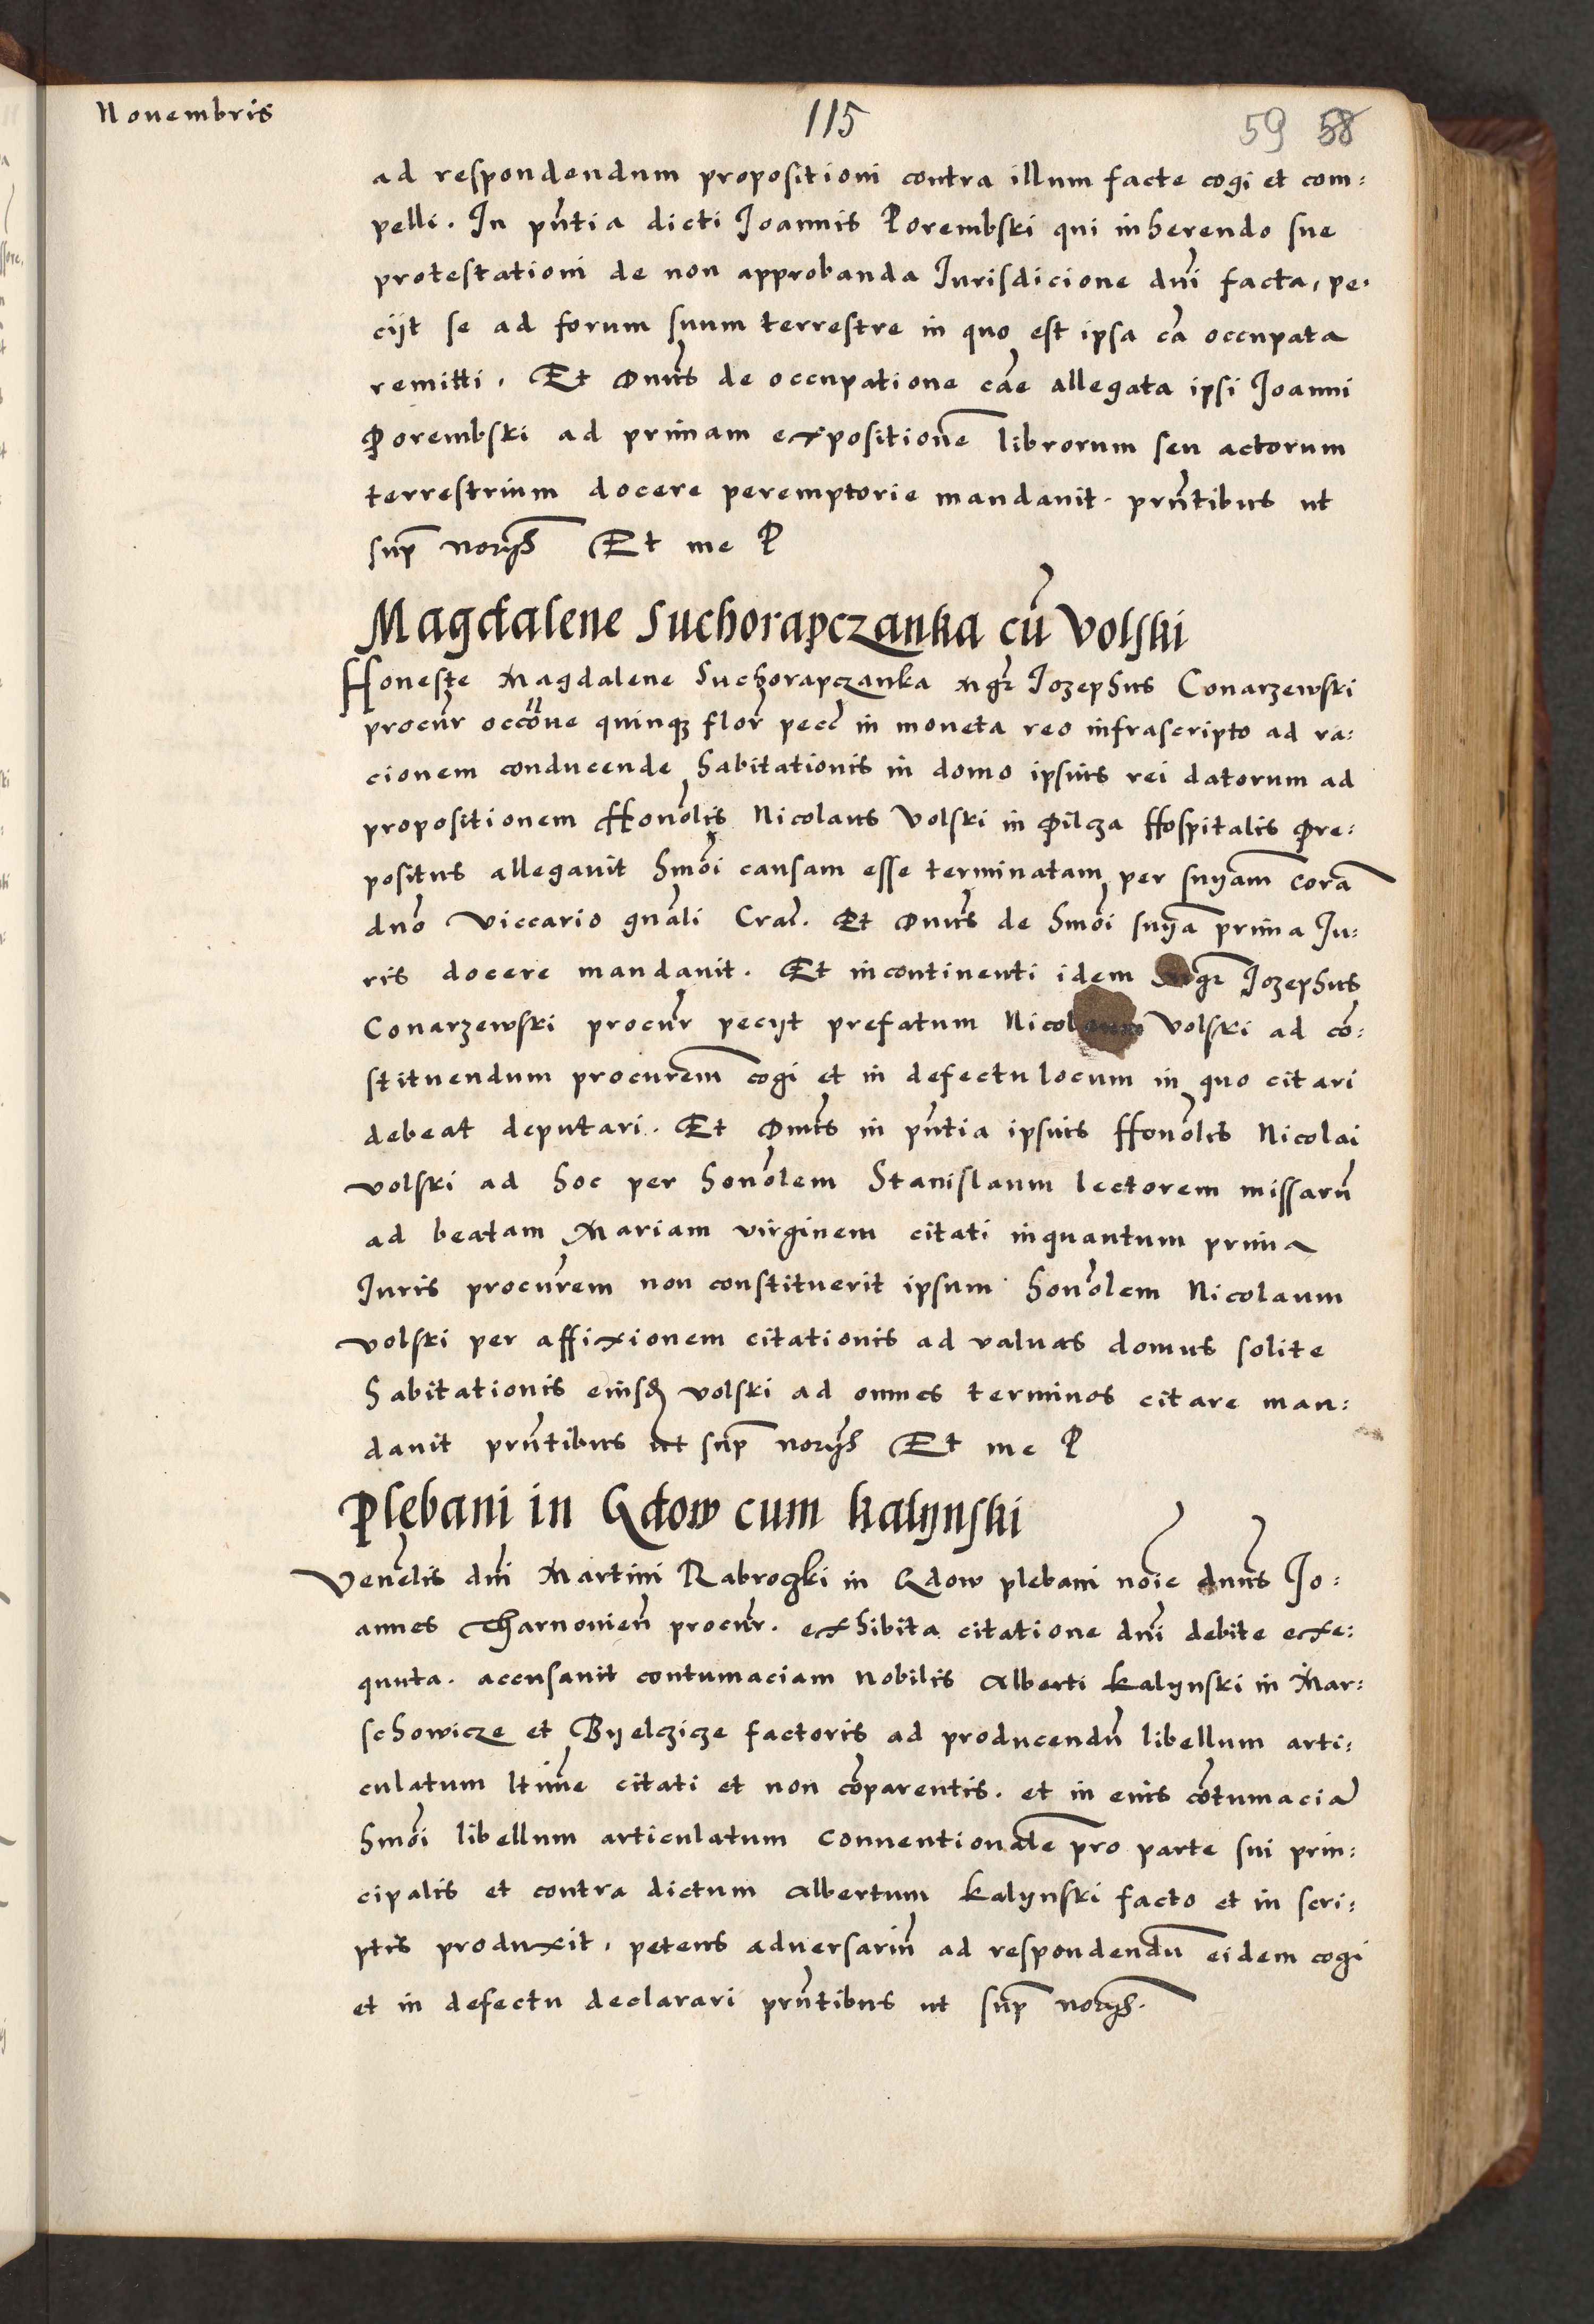 Novembris
115
59 58
ad respondendum propositioni contra illum facte cogi et com:
pelli. In pn̄tia dicti Joannis Porembski qui inherendo sue
protestationi de non approbanda Jurisdicione dn̄i facta, pe:
ciit se ad forum suum terrestre in quo est ipsa cā occupata
remitti. Et Dn̄us de occupatione cāe allegata ipsi Joanni
Porembski ad primam expositionē librorum seu actorum
terrestrium docere peremptorie mandavit. prn̄tibus ut
sup̄ norijs Et me P
Magdalene Suchorapczanka cū Volski
Honeste Magdalene Suchorapczanka Mgr̄ Jozephus Conarzewski
procur̄ occōne quinqꝫ flor̄ pecc̄ in moneta reo infrascripto ad ra:
cionem conducende habitationis in domo ipsius rei datorum ad
propositionem Honōlis Nicolaus Volski in Pilcza Hospitalis Pre:
positus allegavit hmōi causam esse terminatam per snīam corā
dn̄o Viccario gn̄ali Crac̄. Et Dn̄us de hmōi sn̄ia prima Ju:
ris docere mandavit. Et incontinenti idem Mgr̄ Jozephus
Conarzewski procur̄ peciit prefatum Nicolaum Volski ad cō:
stituendum procurem̄ cogi et in defectu locum in quo citari
debeat deputari. Et Dn̄us in pn̄tia ipsius Honōlis Nicolai
Volski ad hoc per honōlem Stanislaum lectorem missarū
ad beatam Mariam virginem citati inquantum prima
Juris procur̄em non constituerit ipsum honōlem Nicolaum
Volski per affixionem citationis ad valvas domus solite
habitationis eiusd̄ Volski ad omnes terminos citare man:
davit prn̄tibus ut sup̄ norijs Et me P
Plebani in Gdow cum Kalynski
Venēlis dn̄i Martini Rabroczki in Gdow plebani noīe dn̄us Jo:
annes Tharnovien̄ procur̄. exhibita citatione dn̄i debite exe:
quuta. accusavit contumaciam Nobilis Alberti Kalynski in Mar:
schowicze et Byelczicze factoris ad producendū libellum arti:
culatum lt̄ime citati et non cōparentis. et in eius cōtumaciā
hmōi libellum articulatum conventionalē pro parte sui prin:
cipalis et contra dictum Albertum Kalynski facto et in scri:
ptis produxit, petens adversariū ad respondendū eidem cogi
et in defectu declarari prn̄tibus ut sup̄ norijs.